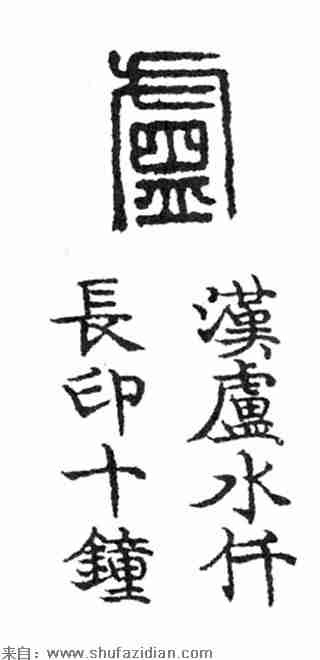 盧
漢盧水仟
長印十鐘
来自：www.shufazidian.com